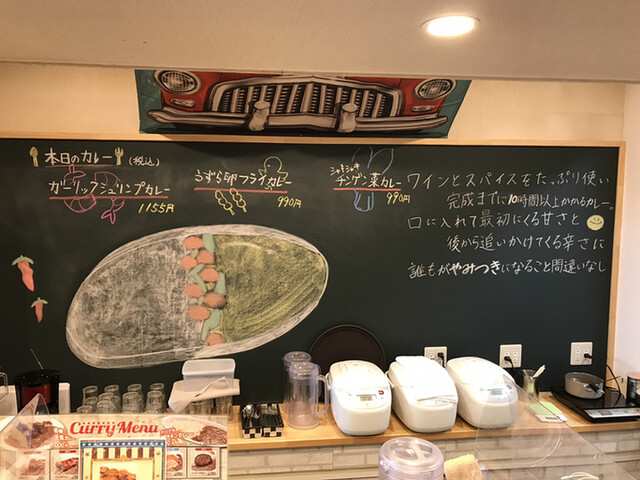 本日のカレー (税込)
ガーリックシュリンプカレー
1155円
うずら卵フライカレー
990円
シャキシャキ
チンゲン菜カレー
990円
ワインとスパイスをたっぷり使い
完成までに10時間以上かかるカレー。
口に入れて最初にくる甘さと
後から追いかけてくる辛さに
誰もがやみつきになること間違いなし
Curry Menu